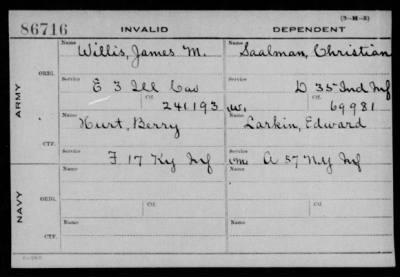 (3-M-3)
86716 INVALID DEPENDENT
Name Name
Willis, James M. Saalman, Christian
ORIG. Service Service
E 3 Ill Cav D 35 Ind Inf
Ctf. Ctf.
ARMY 241193 W. 69981
Name Name
Hurt, Berry Larkin, Edward
CTF. Service Service
F 17 Ky Inf Mo A 57 N.Y. Inf
Name Name
ORIG. Ctf. Ctf.
NAVY Name Name
CTF.